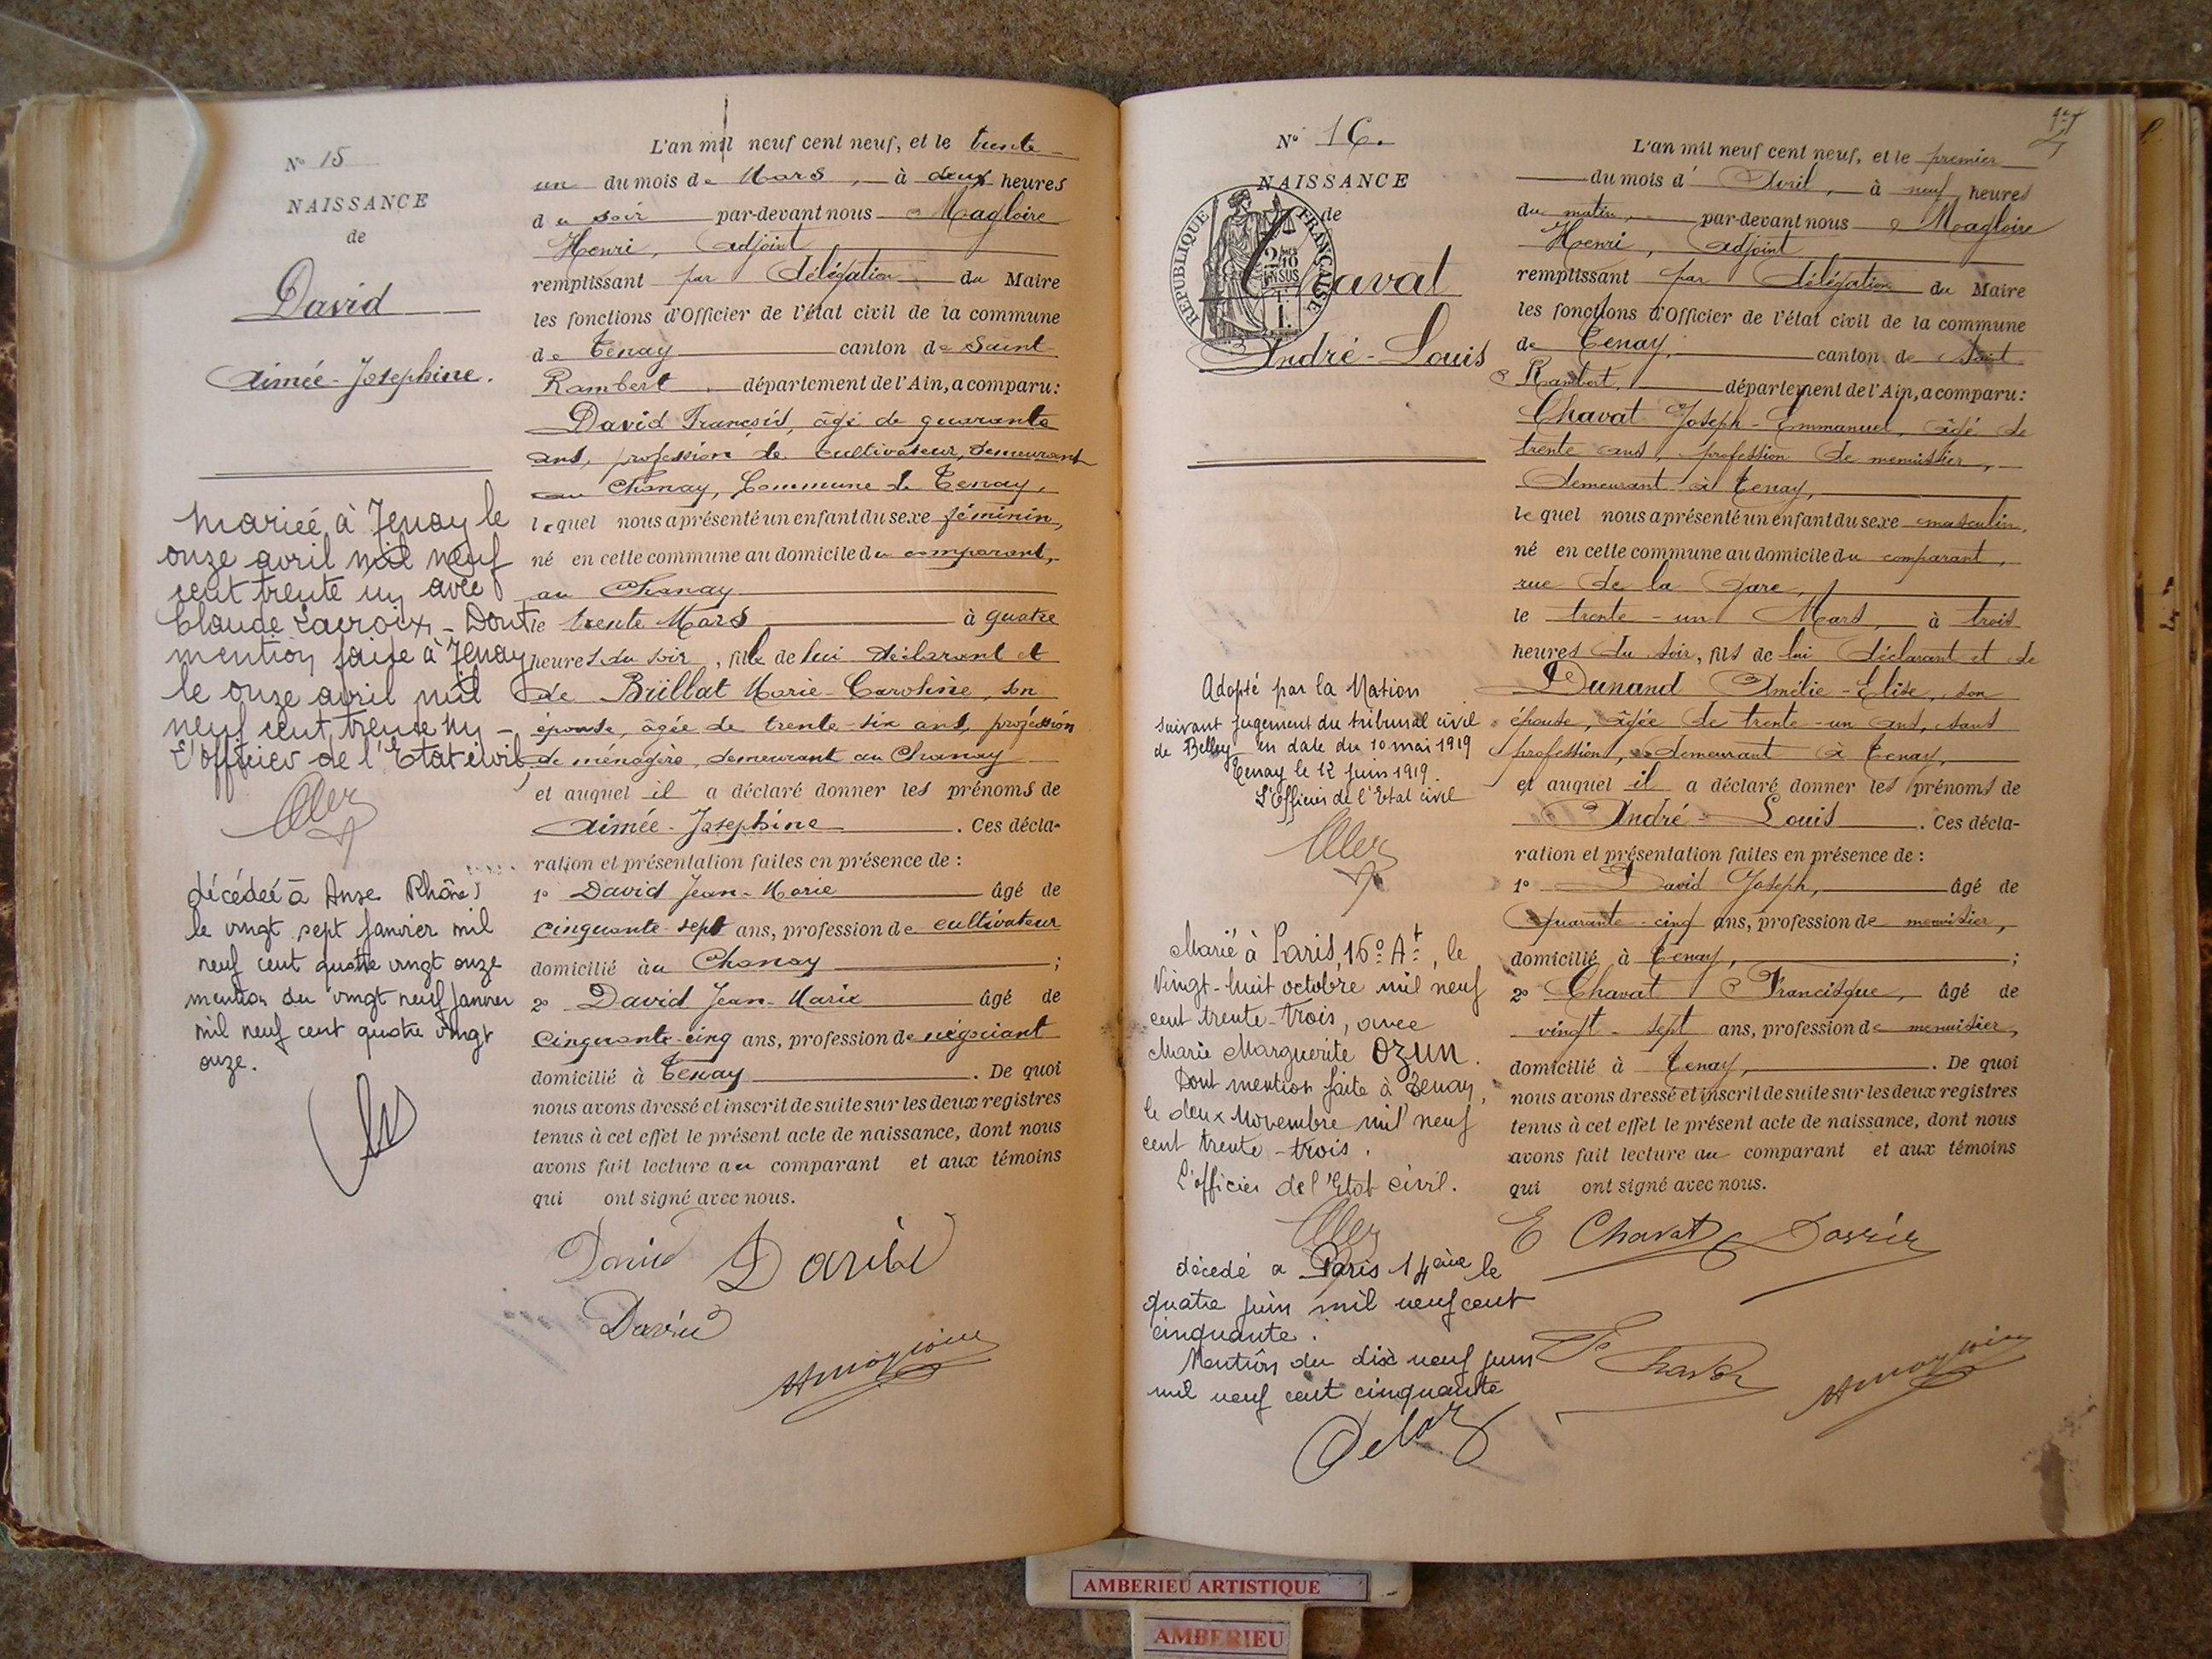 Nº 15
NAISSANCE
de
David
Aimée-Josephine.
Mariée à Tenay le
onze avril mil neuf
cent trente un avec
Claude Lacroix - Dont
mention faite à Tenay
le onze avril mil
neuf cent trente un -
L'officier de l'Etat civil,
décédée à Anse Rhône
le vingt sept janvier mil
neuf cent quatre vingt onze
mention du vingt neuf janvier
mil neuf cent quatre vingt
onze.
L'an mil neuf cent neuf, et le trente
un du mois de Mars, à deux heures
du soir par-devant nous Magloire
Henri, adjoint
remplissant par délégation du Maire
les fonctions d'Officier de l'état civil de la commune
de Tenay canton de Saint
Rambert département de l'Ain, a comparu:
David François, âgé de quarante
ans, profession de cultivateur, demeurant
au Chanay, Commune de Tenay,
lequel nous a présenté un enfant du sexe féminin,
né en cette commune au domicile du comparant,
au Chanay
le trente Mars à quatre
heures du soir, fille de lui déclarant et
de Brillat Marie-Caroline, son
épouse, âgée de trente-six ans, profession
de ménagère, demeurant au Chanay
et auquel il a déclaré donner les prénoms de
Aimée-Josephine. Ces décla-
ration et présentation faites en présence de :
1º David Jean-Marie âgé de
cinquante-sept ans, profession de cultivateur
domicilié au Chanay ;
2º David Jean-Marie âgé de
Cinquante-cinq ans, profession de négociant
domicilié à Tenay. De quoi
nous avons dressé et inscrit de suite sur les deux registres
tenus à cet effet le présent acte de naissance, dont nous
avons fait lecture au comparant et aux témoins
qui ont signé avec nous.
David David
David
Hmagloire
Nº 16.
NAISSANCE
de
RÉPUBLIQUE FRANÇAISE
Chavat
André-Louis
Adopté par la Nation
suivant jugement du tribunal civil
de Belley en date du 10 mai 1919
Tenay le 12 juin 1919.
L'Officier de l'Etat civil
Marié à Paris, 16º At, le
Vingt-huit octobre mil neuf
cent trente-trois, avec
Marie Marguerite OZUN.
Dont mention faite à Tenay,
le deux Novembre mil neuf
cent trente-trois.
L'officier de l'Etat civil.
décédé a Paris 14ème le
quatre juin mil neuf cent
cinquante.
Mention du dix neuf juin
mil neuf cent cinquante
L'an mil neuf cent neuf, et le premier
du mois d'Avril, à neuf heures
du matin, par-devant nous Magloire
Henri, adjoint
remplissant par délégation du Maire
les fonctions d'Officier de l'état civil de la commune
de Tenay, canton de Saint
Rambert, département de l'Ain, a comparu:
Chavat Joseph-Emmanuel, âgé de
trente ans, profession de menuisier,
demeurant à Tenay,
lequel nous a présenté un enfant du sexe masculin,
né en cette commune au domicile du comparant,
rue de la Gare,
le trente-un Mars, à trois
heures du soir, fils de lui déclarant et de
Dunand Amélie-Elise, son
épouse, âgée de trente-un ans, sans
profession, demeurant à Tenay,
et auquel il a déclaré donner les prénoms de
André-Louis. Ces décla-
ration et présentation faites en présence de :
1º David Joseph, âgé de
quarante-cinq ans, profession de menuisier,
domicilié à Tenay, ;
2º Chavat Francisque, âgé de
vingt-sept ans, profession de menuisier,
domicilié à Tenay, . De quoi
nous avons dressé et inscrit de suite sur les deux registres
tenus à cet effet le présent acte de naissance, dont nous
avons fait lecture au comparant et aux témoins
qui ont signé avec nous.
E Chavat David
Hmagloire
AMBERIEU ARTISTIQUE
AMBERIEU